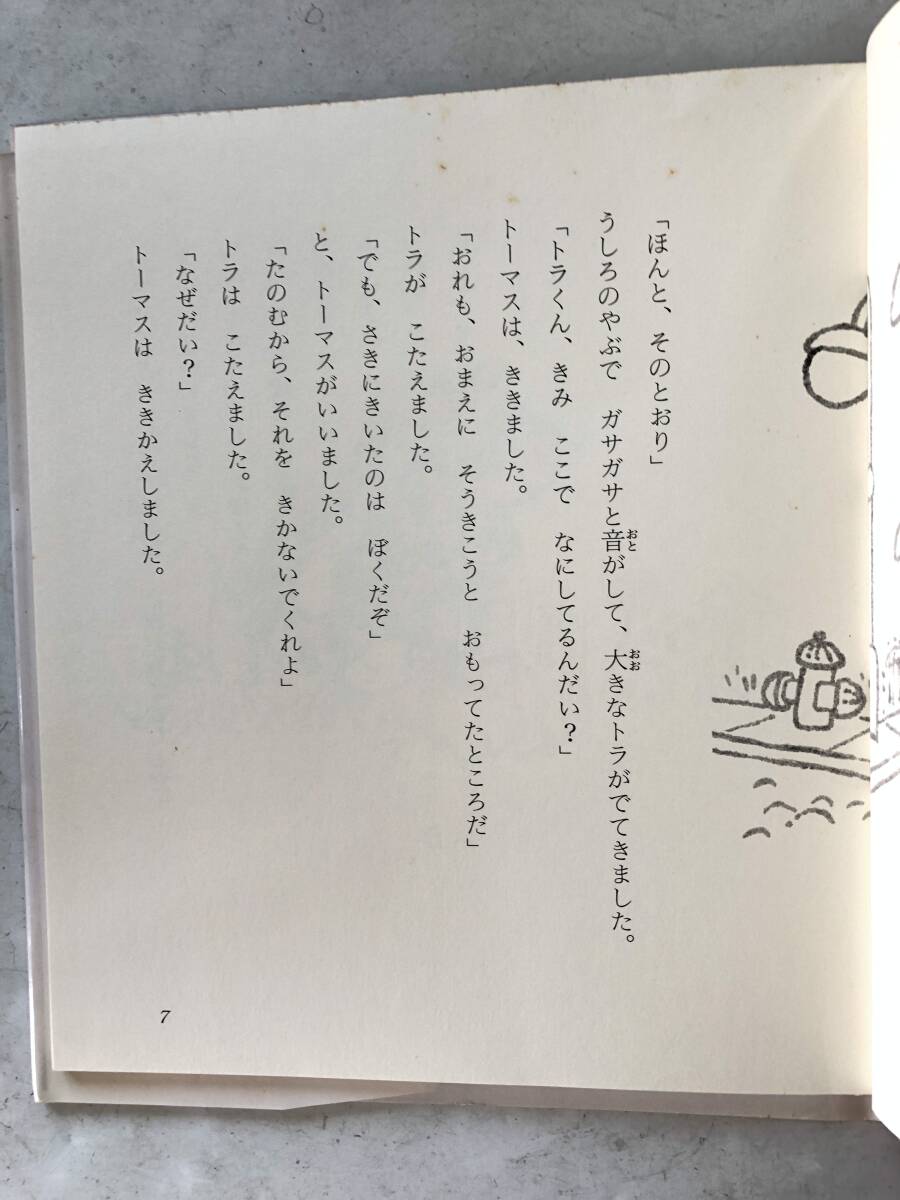 「ほんと、そのとおり」
うしろのやぶで　ガサガサと音がして、大きなトラがでてきました。
おと
おお
「トラくん、きみ　ここで　なにしてるんだい？」
トーマスは、ききました。
「おれも、おまえに　そうきこうと　おもってたところだ」
トラが　こたえました。
「でも、さきにきいたのは　ぼくだぞ」
と、トーマスがいいました。
「たのむから、それを　きかないでくれよ」
トラは　こたえました。
「なぜだい？」
トーマスは　ききかえしました。
7